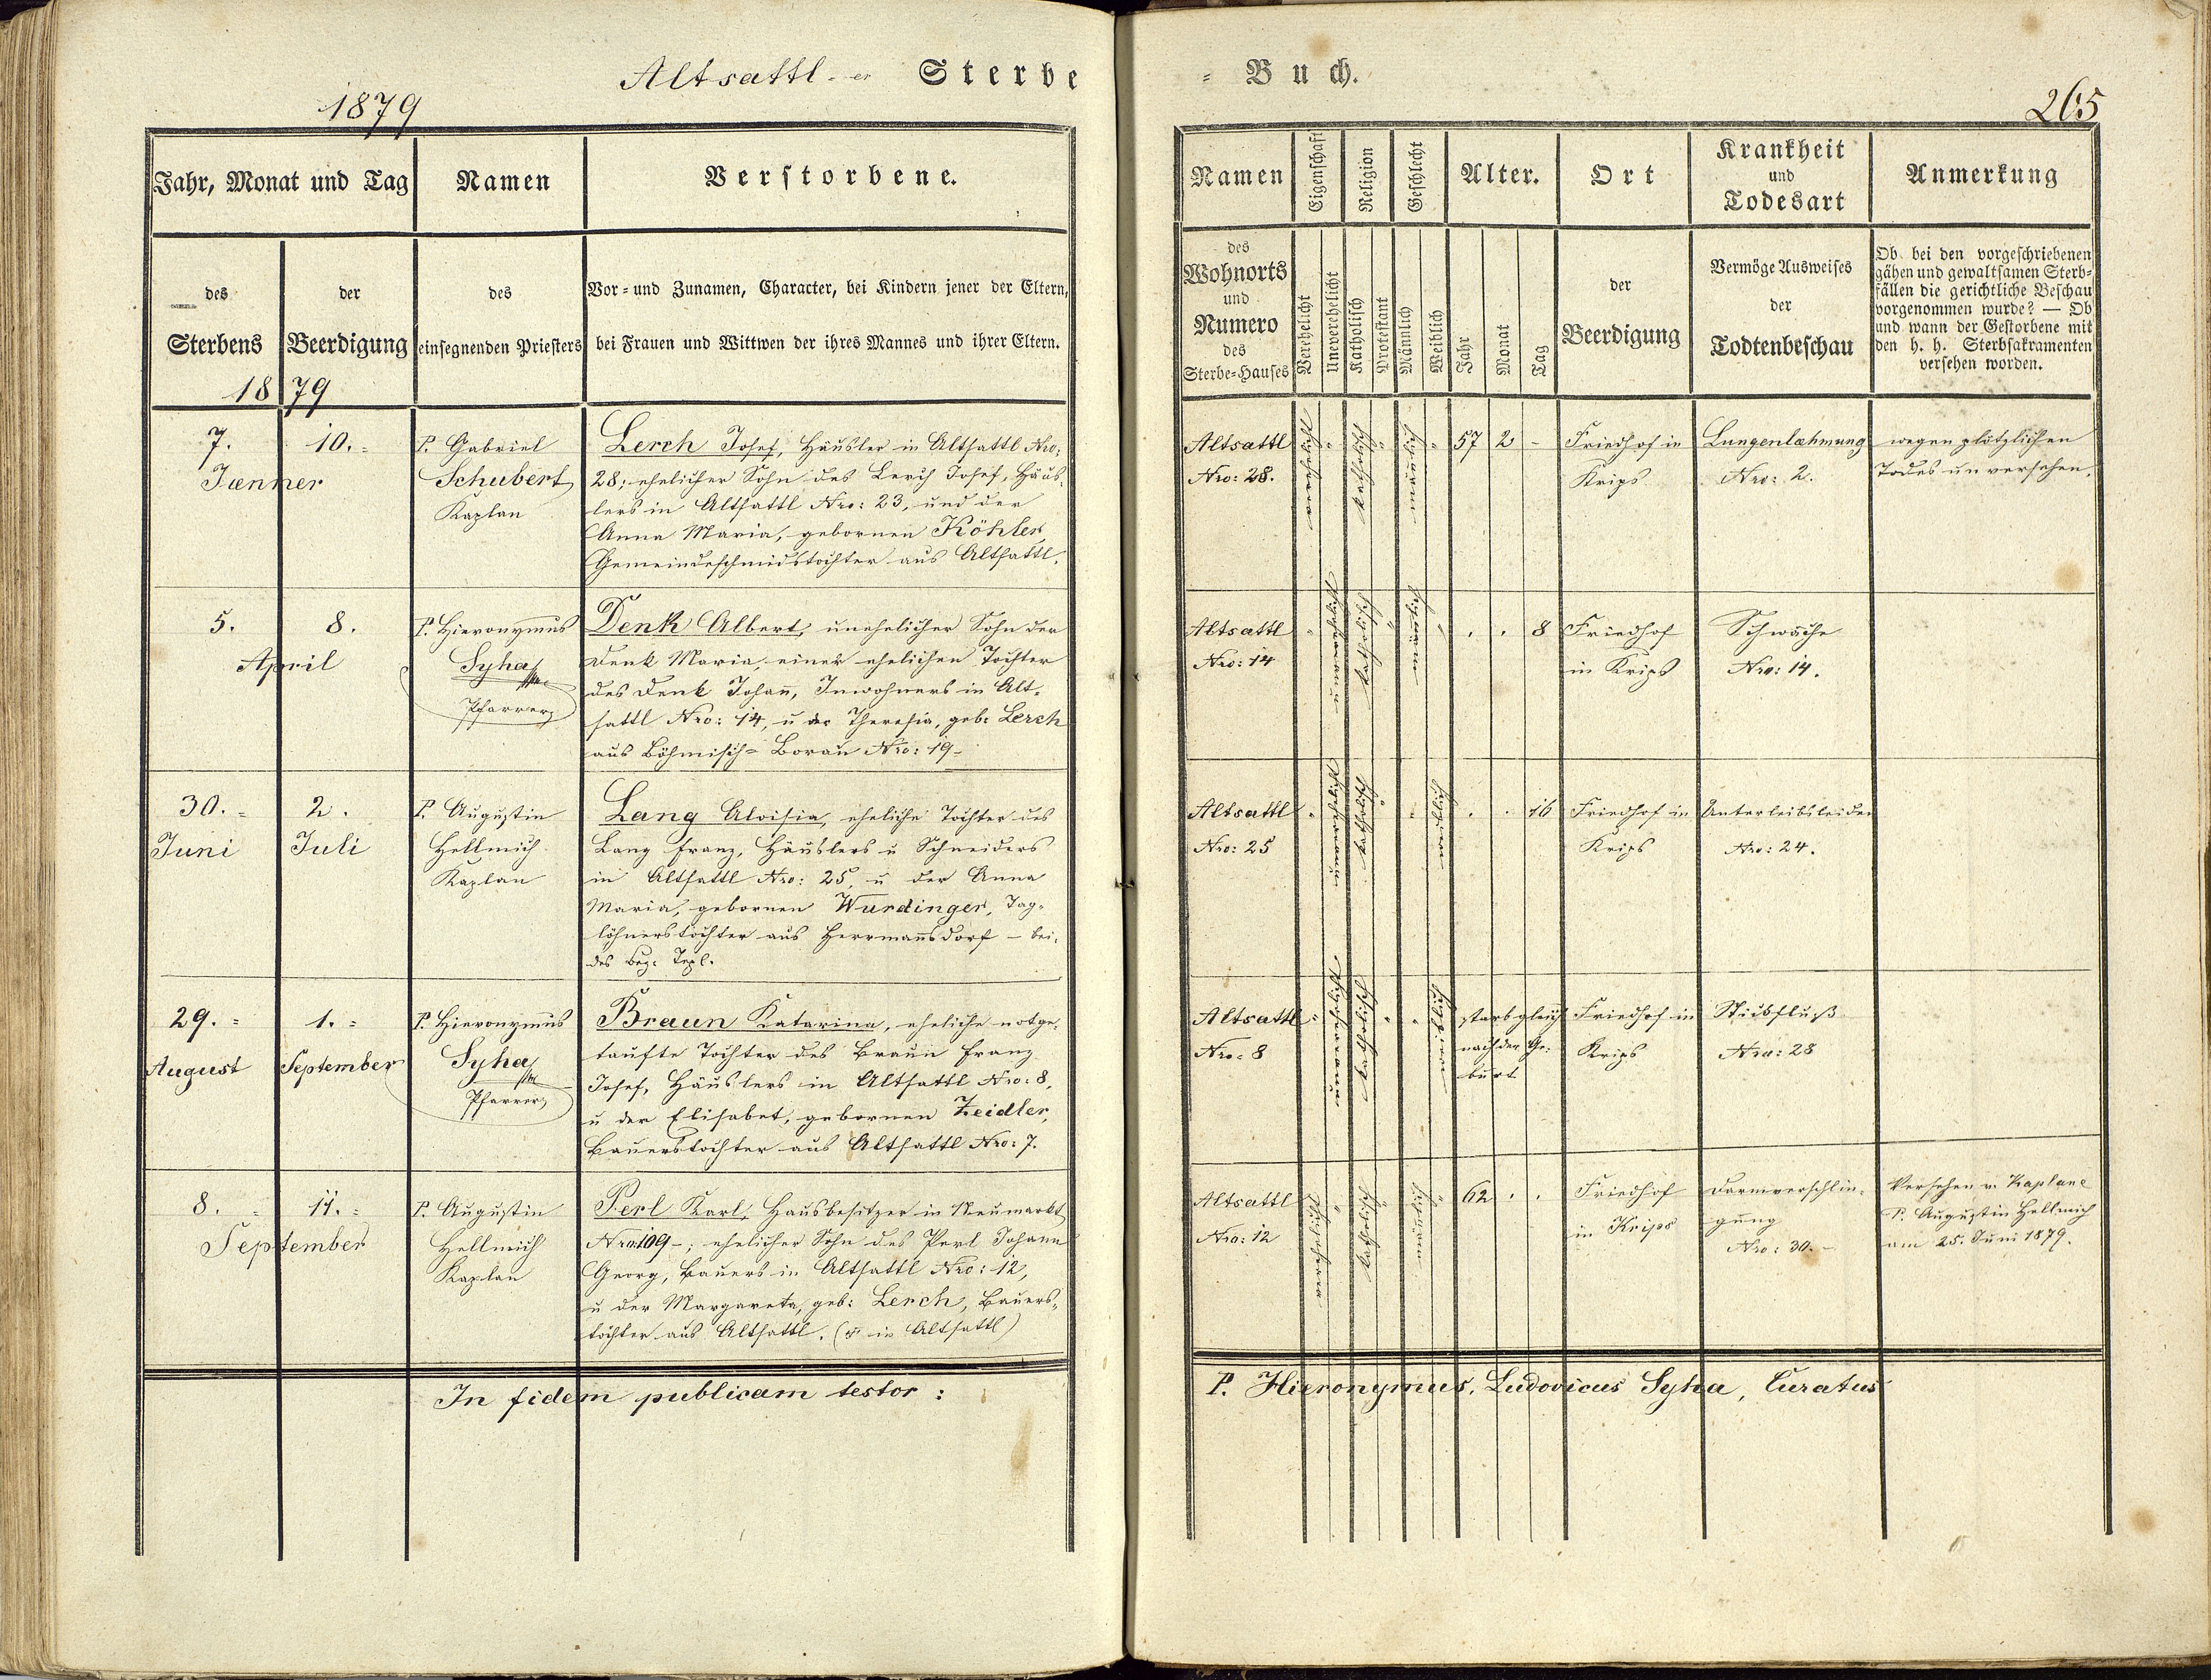 Altsattl-er Sterbe
1879
Jahr, Monat und Tag
Namen
Verstorbene.
des
Sterbens
der
Beerdigung
des
einsegnenden Priesters
Vor- und Zunamen, Character, bei Kindern jener der Eltern,
bei Frauen und Wittwen der ihres Mannes und ihrer Eltern.
1879
7. 10.
Jænner
P. Gabriel
Schubert
Kaplan
Lerch Josef, Häusler in Altsattl Nro:
28; ehelicher Sohn des Lerch Josef, Häus-
lers in Altsattl Nro: 23, und der
Anna Maria, gebornen Köhler,
Gemeindeschmidstochter aus Altsattl.
5. 8.
April
P. Hieronymus
Syha
Pfarrer
Denk Albert, unehelicher Sohn der
Denk Maria, einer ehelichen Tochter
des Denk Johañ, Inwohners in Alt-
sattl Nro: 14, u der Theresia, geb: Lerch
aus Böhmisch-Borau Nro: 19-
30. 2.
Juni Juli
P. Augustin
Hellmich
Kaplan
Lang Aloisia, eheliche Tochter des
Lang Franz, Häuslers u Schneiders
in Altsattl Nro: 25, u der Anna
Maria, gebornen Wurdinger, Tag-
löhnerstochter aus Herrmañsdorf – bei-
des Bez: Tepl.
29. 1.
August September
P. Hieronymus
Syha
Pfarrer
Braun Katarina, eheliche notge-
taufte Tochter des Braun Franz
Josef, Häuslers in Altsattl Nro: 8,
u der Elisabet, gebornen Zeidler,
Bauerstochter aus Altsattl Nro: 7.
8. 11.
September
P. Augustin
Hellmich
Kaplan
Perl Karl, Hausbesitzer in Neumarkt
Nro: 109-; ehelicher Sohn des Perl Johann
Georg, Bauers in Altsattl Nro: 12,
u der Margareta, geb: Lerch, Bauers-
tochter aus Altsattl. ( in Altsattl)
In fidem publicam testor:
= Buch.
265
Namen
Eigenschaft
Religion
Geschlecht
Alter.
Ort
Krankheit
und
Todesart
Anmerkung
des
Wohnorts
und
Numero
des
Sterbe-Hauses
Verehelicht
Unverehelicht
Katholisch
Protestant
Männlich
Weiblich
Jahr
Monat
Tag
der
Beerdigung
Vermöge Ausweises
der
Todtenbeschau
Ob bei den vorgeschriebenen
gähen und gewaltsamen Sterb-
fällen die gerichtliche Beschau
vorgenommen wurde? — Ob
und wann der Gestorbene mit
den h. h. Sterbsakramenten
versehen worden.
Altsattl
Nro: 28.
verehelicht
katholisch
männlich
57 2 -
Friedhof in
Krips
Lungenlæhmung
Nro: 2.
wegen plötzlichen
Todes unversehen.
Altsattl
Nro: 14
unverehelicht
katholisch
männlich
8
Friedhof
in Krips
Schwäche
Nro: 14.
Altsattl
Nro: 25
unverehelicht
katholisch
weiblich
16
Friedhof in
Krips
Unterleibsleiden
Nro: 24.
Altsattl
Nro: 8
unverehelicht
katholisch
weiblich
starb gleich
nach der Ge-
burt
Friedhof in
Krips
Stickfluß
Nro: 28
Altsattl
Nro: 12
verehelicht
katholisch
männlich
62
Friedhof
in Krips
Darmverschlin-
gung
Nro: 30.-
Versehen v. Kaplane
P. Augustin Hellmich
am 25. Juni 1879.
P. Hieronymus, Ludovicus Syha, Curatus